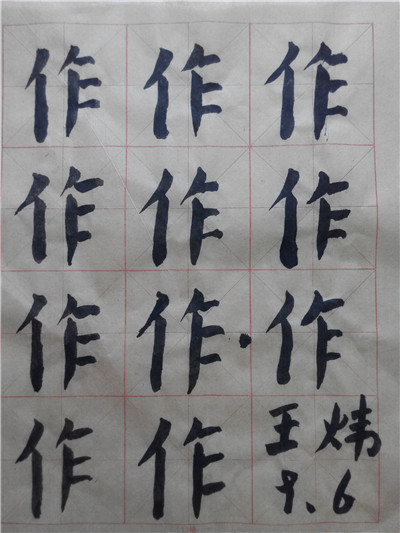 作 作 作
作 作 作
作 作 作
作 作 王炜
9.6